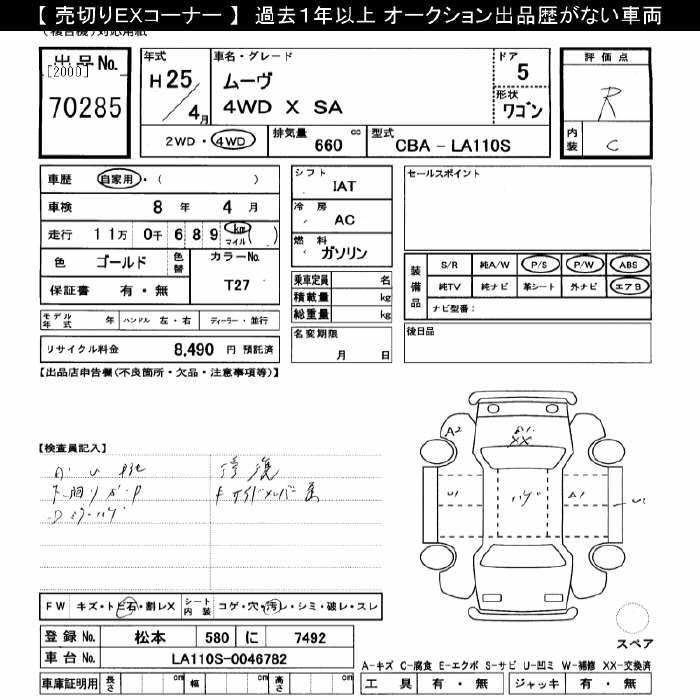 【 売切りEXコーナー 】 過去１年以上 オークション出品歴がない車両
(複合機)対応用紙
出品No.
[2000]
70285
年式
H 25
4月
車名・グレード
ムーヴ
4WD X SA
ドア
5
形状
ワゴン
評価点
R
内装
C
2WD・4WD
排気量
660 cc
型式
CBA - LA110S
車歴 自家用・( )
車検 8 年 4 月
走行 11万 0千 6 8 9 km マイル ( )
色 ゴールド 色替 カラーNo.
T27
保証書 有・無
モデル年式 年 ハンドル 左・右 ディーラー・並行
リサイクル料金 8,490 円 預託済
シフト
IAT
冷房
AC
燃料
ガソリン
乗車定員 名
積載量 kg
総重量 kg
名変期限
月 日
セールスポイント
装備品
S/R 純A/W P/S P/W ABS
純TV 純ナビ 革シート 外ナビ エアB
ナビ型番：
後日品
【出品店申告欄(不良箇所・欠品・注意事項等)】
【検査員記入】
修復
A2
XX
U1
A1
FW キズ・トビ石・割レX シート内装 コゲ・穴・汚レ・シミ・破レ・スレ
登録No. 松本 580 に 7492
車台No. LA110S-0046782
車庫証明用 長さ cm 幅 cm 高さ cm
スペア
A-キズ C-腐食 E-エクボ S-サビ U-凹ミ W-補修 XX-交換済
工具 有・無 ジャッキ 有・無